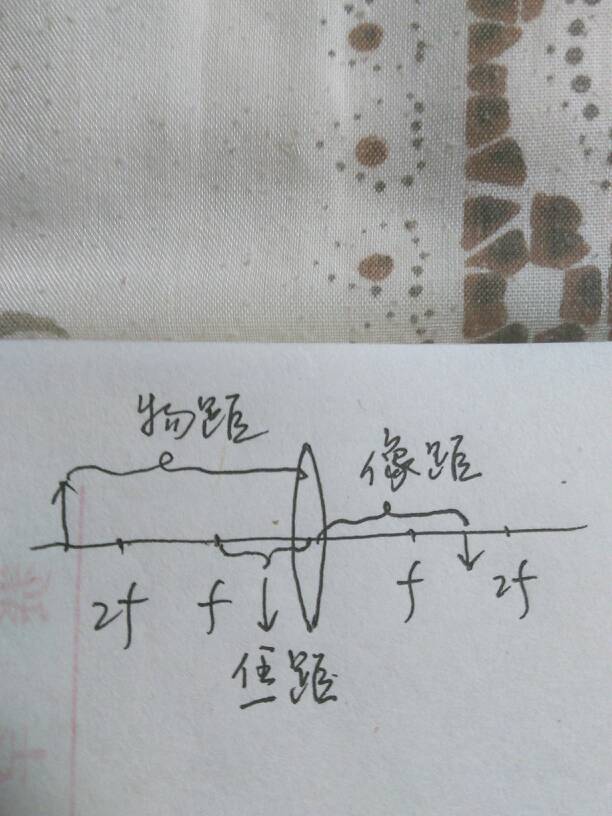 物距
像距
2f
f
f
2f
焦距